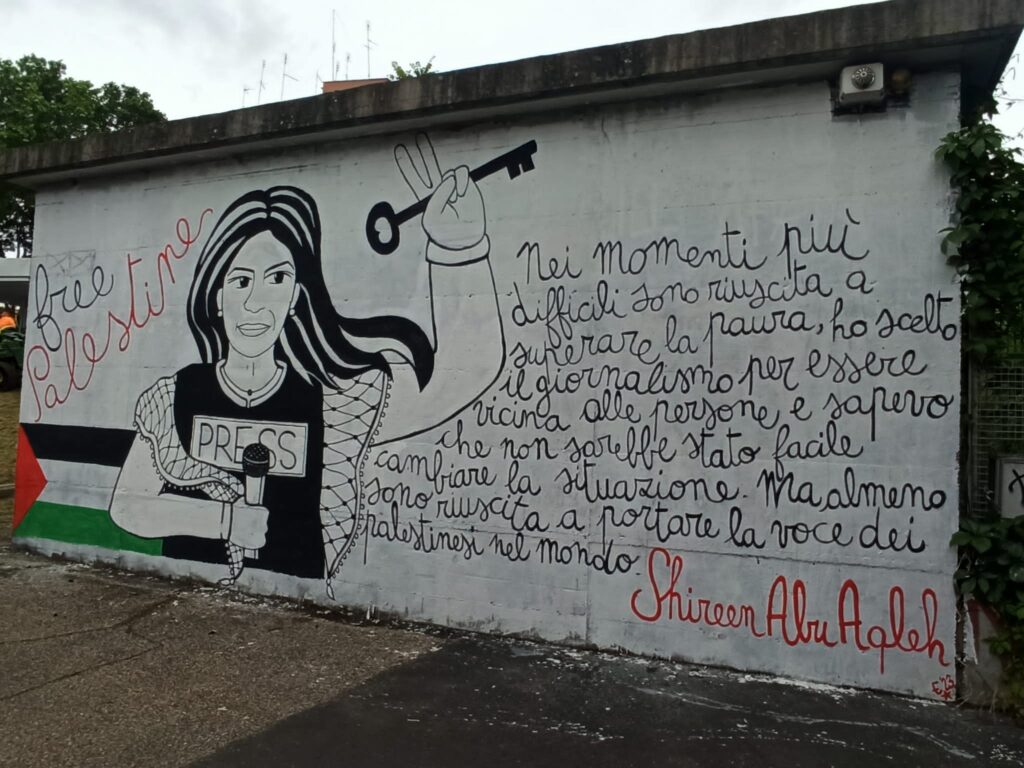 free
Palestine
PRESS
Nei momenti più
difficili sono riuscita a
superare la paura, ho scelto
il giornalismo per essere
vicina alle persone e sapevo
che non sarebbe stato facile
cambiare la situazione. Ma, almeno
sono riuscita a portare la voce dei
palestinesi nel mondo.
Shireen Abu Aqleh